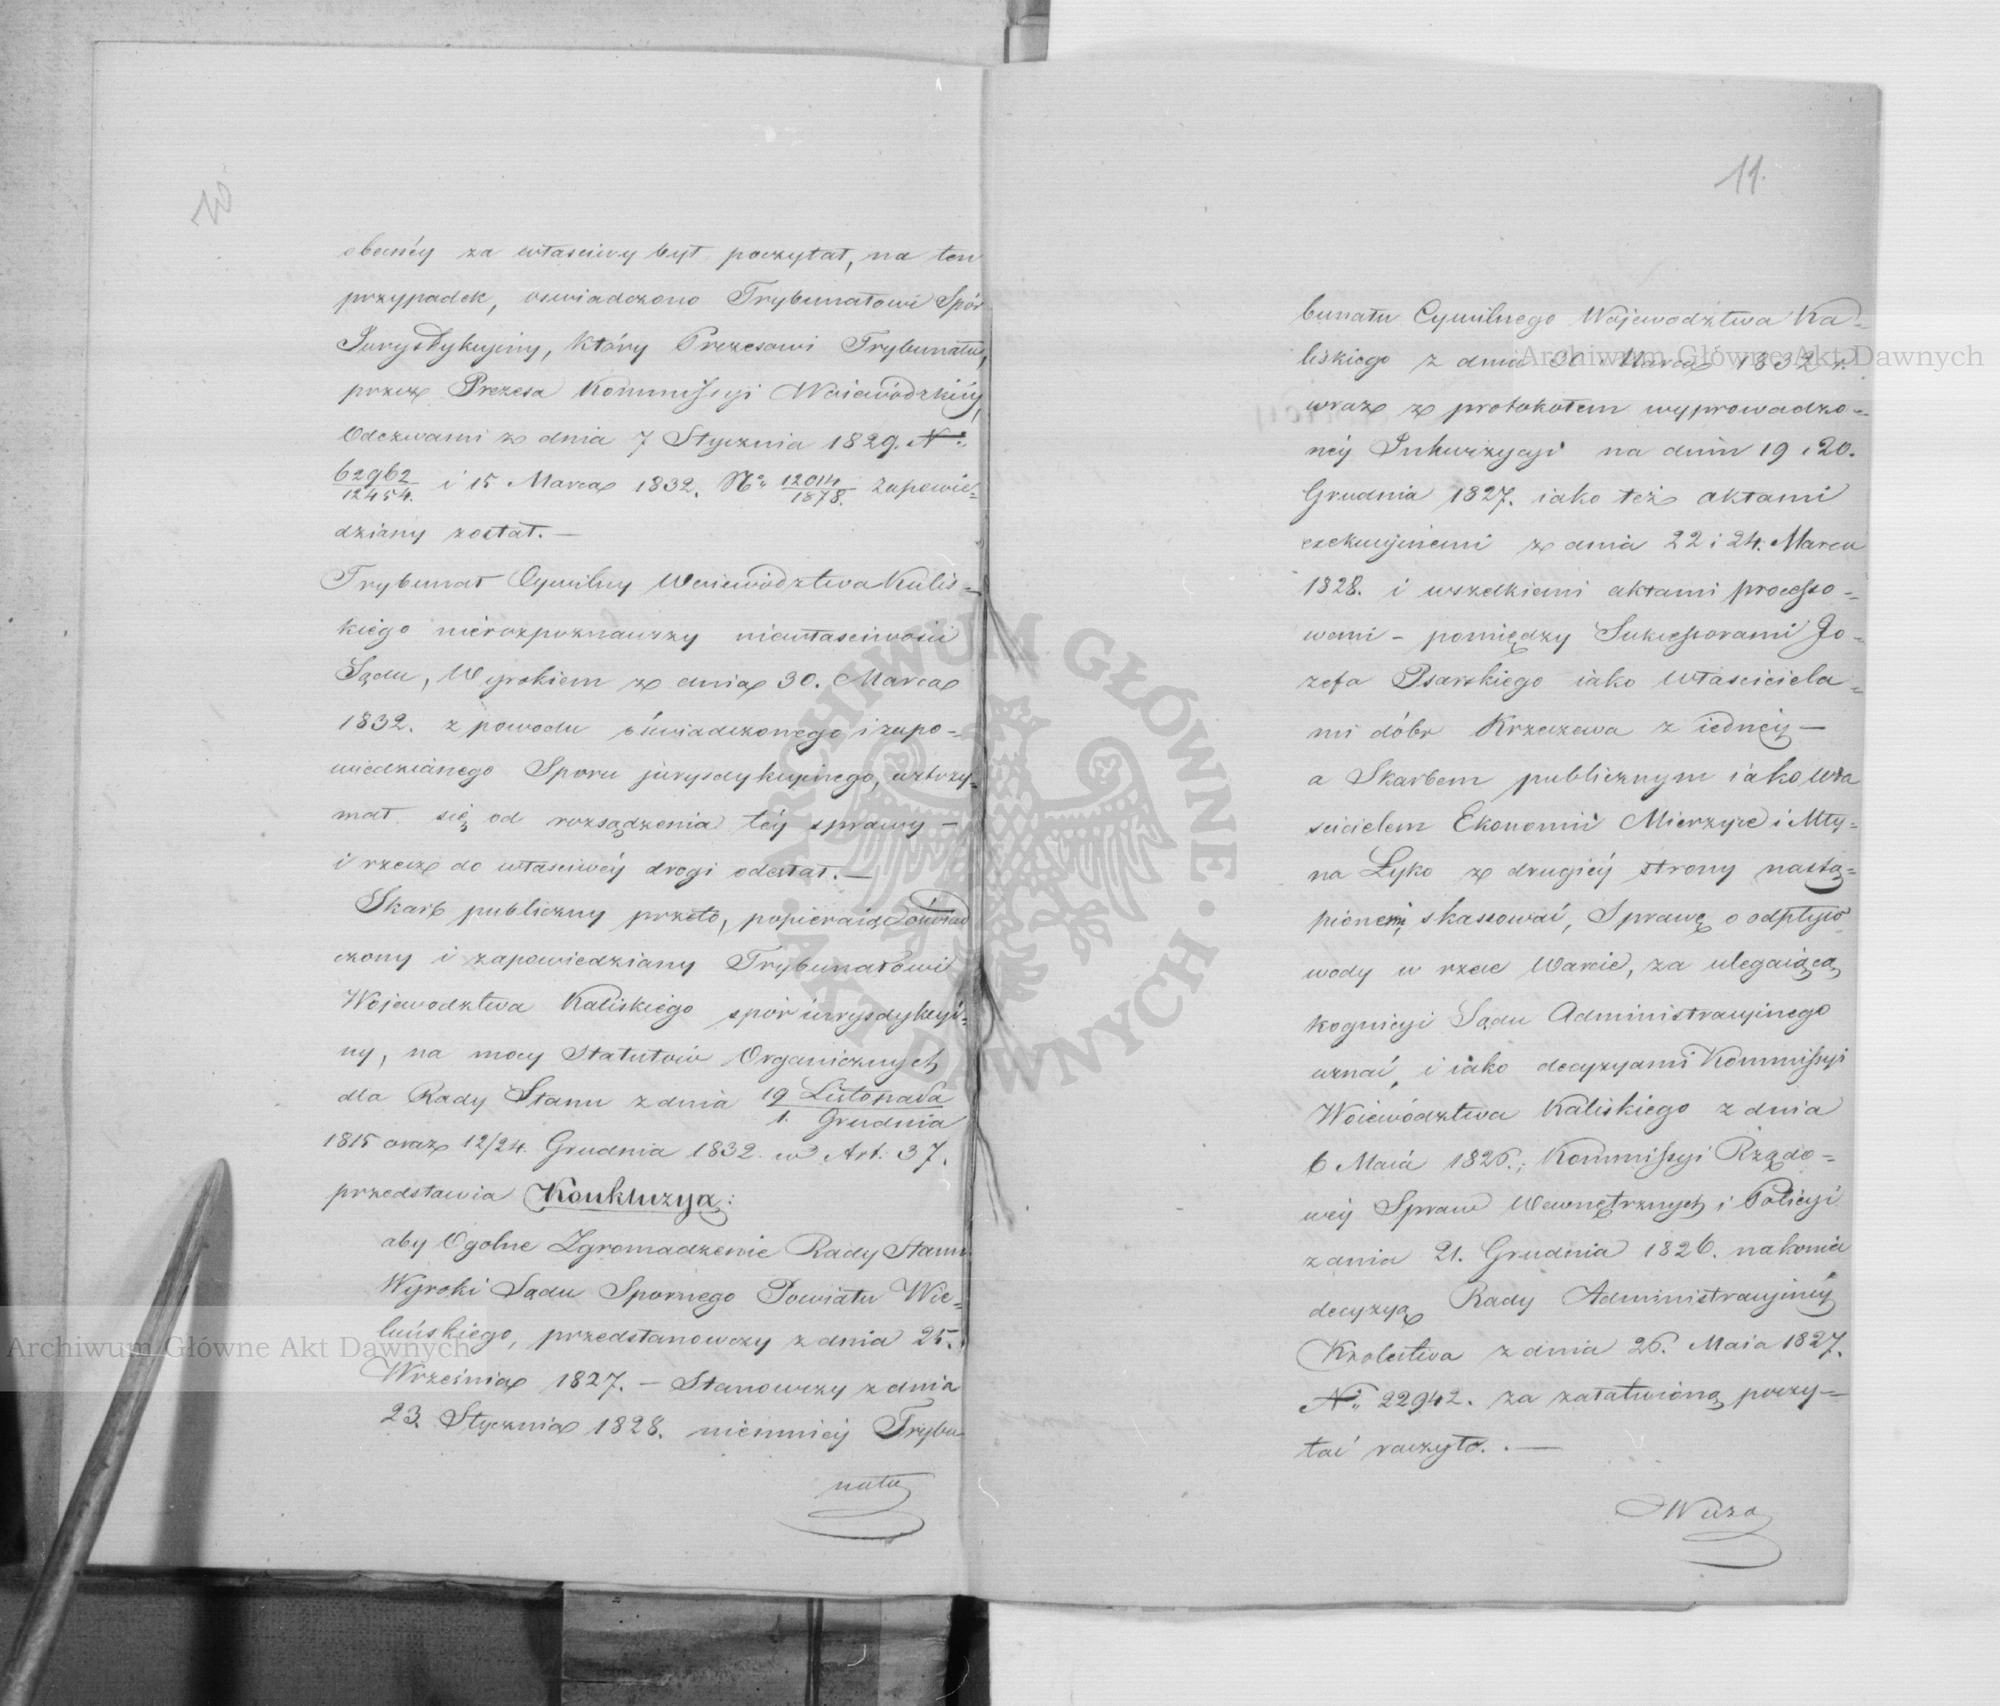 obecnéy za własciwy był poczytał, na ten
przypadek, oswiadczono Trybunałowi Spór
Jurysdykcyiny, który Prezesowi Trybunału,
przez Prezesa Kommissyi Woiewódzkiéy,
Odezwami z dnia 7 Stycznia 1829. N°
62962/12454. i 15 Marca 1832. N° 12014/1878. zapowie-
dziany został. —
Trybunał Cywilny Woiewództwa Kalis-
kiego nierozpoznawszy niewłasciwosci
Sądu, Wyrokiem z dnia 30. Marca
1832. z powodu oświadczonego i zapo-
wiedzianego Sporu jurysdykcyinego, wstrzy-
mał się od rozsądzenia téy sprawy —
i rzecz do własciwéy drogi odesłał. —
Skarb publiczny przeto, popieraiąc oświad
czony i zapowiedziany Trybunałowi
Wojewodztwa Kaliskiego spór iurysdykcyi-
ny, na mocy Statutów Organicznych
dla Rady Stanu z dnia 19 Listopada / 1. Grudnia
1815 oraz 12/24. Grudnia 1832 w Art. 37.
przedstawia Konkluzya:
aby Ogolne Zgromadzenie Rady Stanu
Wyroki Sądu Spornego Powiatu Wie-
luńskiego, przedstanowczy z dnia 25.
Września 1827. — Stanowczy z dnia
23. Stycznia 1828. niemniéy Trybu
nału
11.
bunału Cywilnego Wojewodztwa Ka-
liskiego z dnia 30 Marca 1832 r.
wraz z protokołem wyprowadzo-
néy Inkwizycyi na dniu 19 i 20.
Grudnia 1827. iako też aktami
exekucyinemi z dnia 22 i 24. Marca
1828. i wszelkiemi aktami processo-
wemi — pomiędzy Sukcessorami Jó-
zefa Psarskiego iako własciciela-
mi dóbr Krzeczewa z iednéy —
a Skarbem publicznym iako wła
scicielem Ekonomii Mierzyce i Mły-
na Łyko z drugiéy strony nastą-
pionemi, skassować, Sprawę o odpływ
wody w rzece Warcie, za ulegaiącą
kognicyi Sądu Administracyinego
uznać, i iako decyzyami Kommissyi
Woiewództwa Kaliskiego z dnia
6 Maia 1826.; Kommissyi Rządo-
wéy Spraw Wewnętrznych i Policyi
z dnia 21. Grudnia 1826. nakoniec
decyzyą Rady Administracyinéy
Krolestwa z dnia 26. Maia 1827.
N° 22942. za załatwioną poczy-
tać raczyło. —
Archiwum Główne Akt Dawnych
Archiwum Główne Akt Dawnych
ARCHIWUM GŁÓWNE · AKT DAWNYCH ·